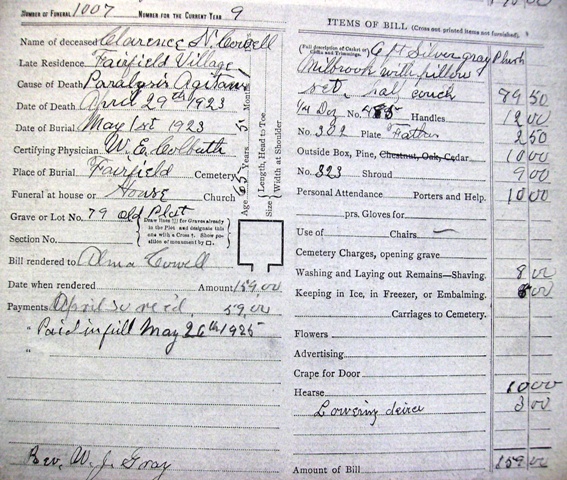 Number of Funeral 1007 Number for the Current Year 9
Name of deceased Clarence N. Cowell
Late Residence Fairfield Village
Cause of Death Paralysis Agitans
Date of Death April 29th 1923
Date of Burial May 1st 1923
Certifying Physician W. E. Colbath
Place of Burial Fairfield Cemetery
Funeral at house or House Church
Grave or Lot No. 79 old Plot
Section No.
Age 65 Years 5 Months
Size { Length, Head to Toe
Width at Shoulder
Bill rendered to Alma Cowell
Date when rendered Amount 159.00
Payments April 30 rec'd, 59,00
" Paid in full May 26th 1925
"
Rev. W. J. Gray
ITEMS OF BILL (Cross out printed items not furnished).
(Full description of Casket or Coffin and Trimmings.) 6 ft Silver gray Plush
Milbrook with pillow
set, couch 89 50
No. Handles 12 00
No. 302 Plate Father 2 50
Outside Box, Pine, Chestnut, Oak, Cedar 10 00
No. 823 Shroud 9 00
Personal Attendance Porters and Help. 10 00
prs. Gloves for
Use of Chairs.
Cemetery Charges, opening grave
Washing and Laying out Remains—Shaving. 8 00
Keeping in Ice, in Freezer, or Embalming. 00
Carriages to Cemetery.
Flowers
Advertising.
Crape for Door
Hearse 10 00
Lowering 3 00
Amount of Bill 159 00